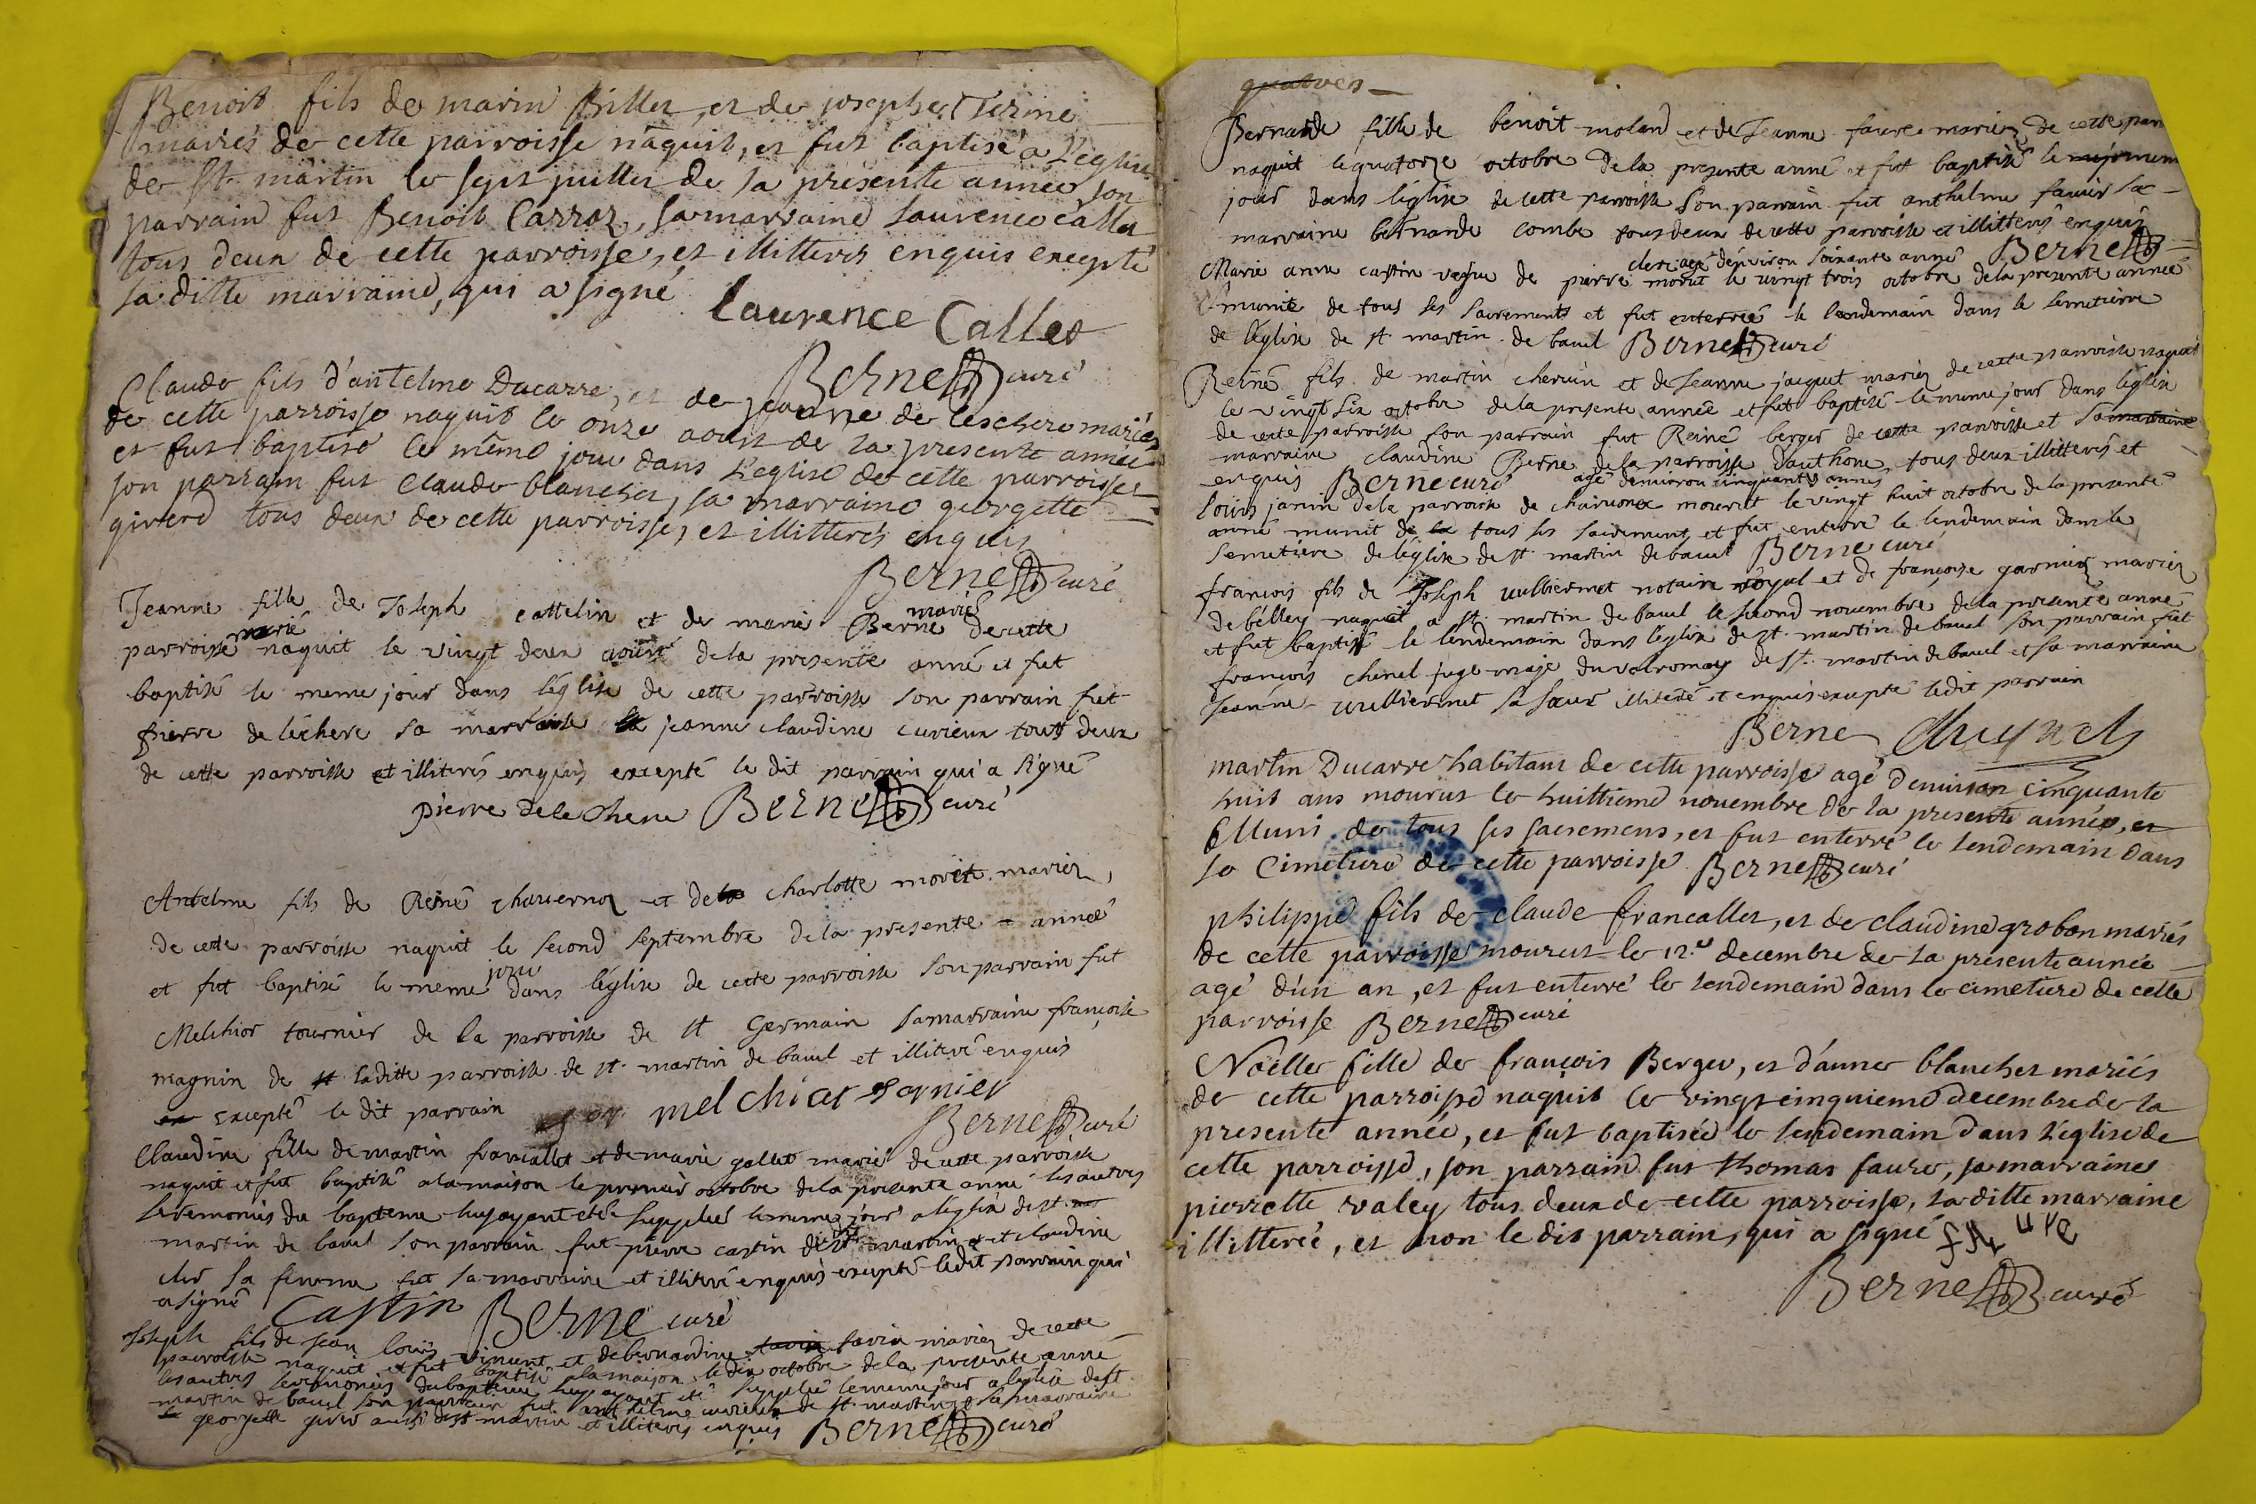 Benoit fils de marin Billet, et de josephe Terme
mariés de cette parroisse naquit, et fut baptisé a l'eglise
de St. martin le sept juillet de la présente année son
parrain fut Benoit Carroz, sa marraine laurence callet
tous deux de cette parroisse, et illitterés enquis excepté
la ditte marraine, qui a signé
laurence Callet
Berne curé
Claude fils d'antelme Ducarre, et de jeanne de leschere mariés
de cette parroisse naquit le onze aoust de la presente année
et fut baptisé le même jour dans l'eglise de cette parroisse
son parrain fut Claude blanchet, sa marraine georgette
givierd tous deux de cette parroisse, et illitterés enquis
Berne curé
Jeanne fille de Joseph cattelin et de marie Berne mariés de cette
parroisse marié naquit le vingt deux aoust de la presente anné et fut
baptisé le meme jour dans l'église de cette parroisse son parrain fut
pierre de léchere sa marraine la jeanne claudine curieux tous deux
de cette parroisse et illiterés enquis excepté le dit parrain qui a signé
pierre delechere Berne curé
Antelme fils de Reiné chavernoz et de la charlotte morêt mariez,
de cette parroisse naquit le second septembre de la presente année
et fut baptisé le meme jour dans l'église de cette parroisse son parrain fut
Melchior tournier de la parroisse de st Germain sa marraine françoise
magnin de st laditte parroisse de st. martin de bavel et illiteré enquis
excepté le dit parrain melchior tornier
Berne curé
Claudine fille de martin francallet et de marie gallet marié de cette parroisse
naquit et fut baptisé a la maison le premier octobre de la presente anné les autres
seremonies du bapteme luy ayant eté supplée le meme jour a l'églize de st.
martin de bavel son parrain fut pierre castin de st martin et claudine
clerc sa femme fut sa marraine et illiteré enquis excepté ledit parrain qui
a signé Castin Berne curé
Joseph fils de jean louis vincent et de bernardine savin mariez de cette
parroisse naquit et fut baptisé a la maison le dix octobre de la presente anné
les autres seremonies du bapteme luy ayant eté supplée le meme jour a l'église de st
martin de bavel son parrain fut anthelme curieux de st. martin et sa marraine
georgette givier aussi de st martin et illiterés enquis Berne curé
quatres
Bernarde fille de benoit moland et de Jeanne faure mariez de cette parr
naquit le quatorze octobre de la presente anné et fut baptisé le
jour dans l'église de cette parroisse son parrain fut anthelme favier sa
marraine bernarde combe tous deux de cette parroisse et illitterés enquis
Berne
Marie anne castin vefve de pierre clerc agé d'environ soixante anné morut le vingt trois octobre de la presente année
munie de tous les sacrements et fut enterrée le lendemain dans le semetierre
de l'église de st martin de bavel Berne curé
Reiné fils de martin chervin et de Jeanne jacquet mariez de cette parroisse naquit
le vingt six octobre de la presente année et fut baptisé le meme jour dans l'église
de cette parroisse son parrain fut Reiné berger de cette parroisse et sa marraine
marraine claudine Berne de la parroisse d'authone, tous deux illitterés et
enquis Berne curé
louis janin de la parroisse de agé d'environ cinquante annés mourut le vingt huit octobre de la presente
anné munit de tous les sacrement, et fut enterré le lendemain dans le
semetiere de l'église de st. martin de bavel Berne curé
françois fils de Joseph vulliermet notaire royal et de françoise garnier mariez
de bélley naquit a st. martin de bavel le second novembre de la presente anné
et fut baptisé le lendemain dans l'église de st. martin de bavel son parrain fut
françois chenel juge maje du valromay de st. martin de bavel et sa marraine
Jeanne vulliermet sa sœur illiteré et enquis excepté ledit parrain
Berne
martin Ducarre habitant de cette parroisse agé d'environ cinquante
huit ans mourut le huittieme novembre de la presente année, et
Muni de tous ses sacremens, et fut enterré le lendemain dans
le Cimetiere de cette parroisse Berne curé
philippe fils de claude francallet, et de claudine grobon mariés
de cette parroisse mourut le 12.e decembre de la présente année
agé d'un an, et fut enterré le lendemain dans le cimetiere de cette
parroisse Berne curé
Noëlle fille de françois Berger, et d'anne blanchet mariés
de cette parroisse naquit le vingt cinquieme decembre de la
presente année, et fut baptisée le lendemain dans l'eglise de
cette parroisse, son parrain fut thomas faure, sa marraine
pierrette valey tous deux de cette parroisse, la ditte marraine
illitterée, et non le dit parrain, qui a signé
Berne curé